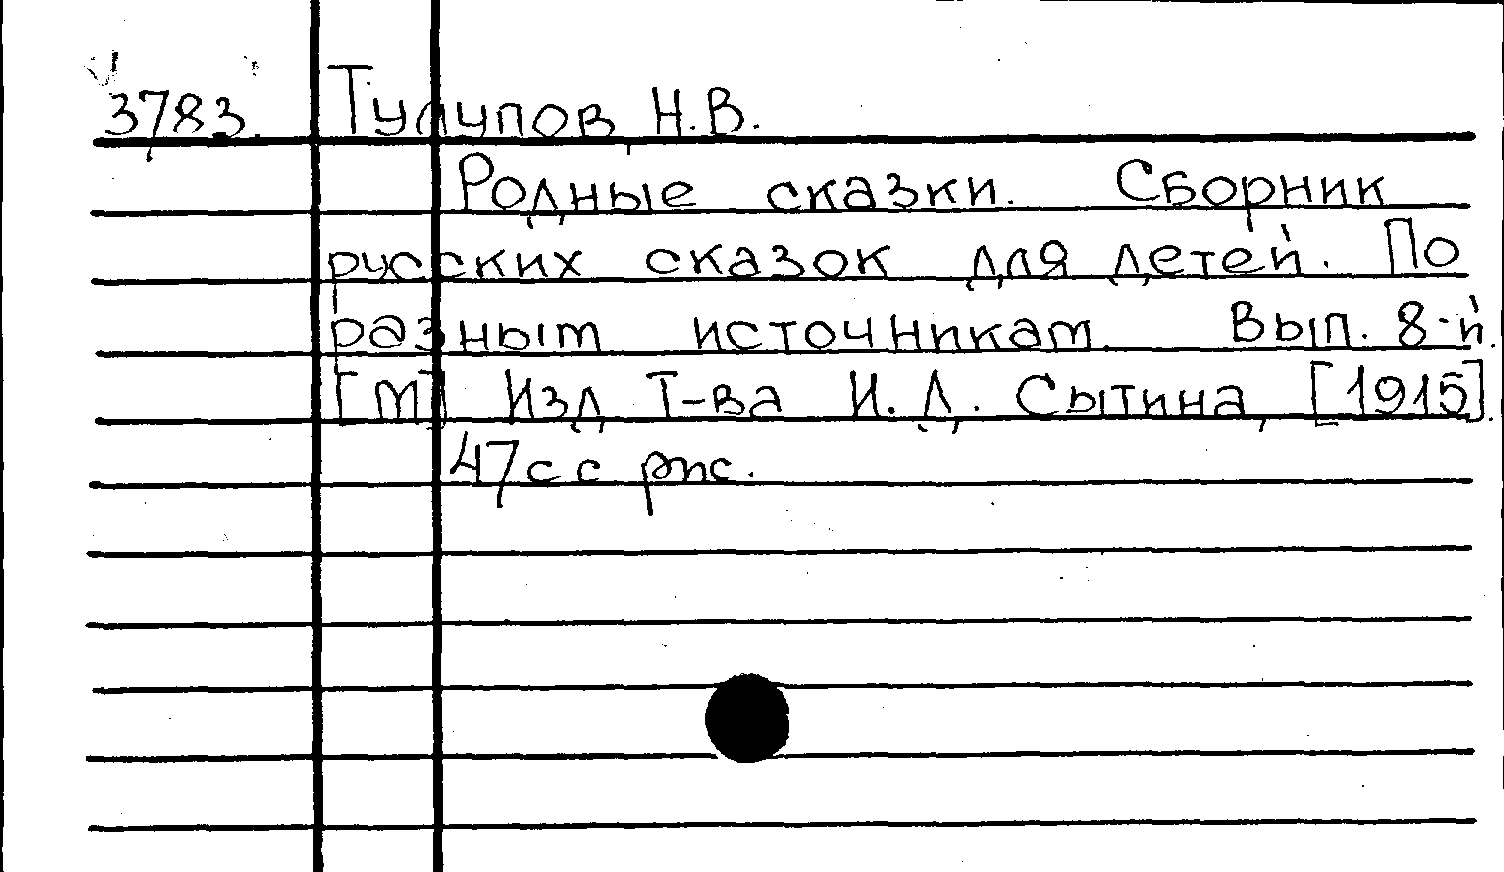 3783. Тулупов, Н.В.
Родные сказки. Сборник
русских сказок для детей. По
разным источникам. Вып. 8-й.
[М] Изд. Т-ва И. Д. Сытина, [1915].
47с с рис.